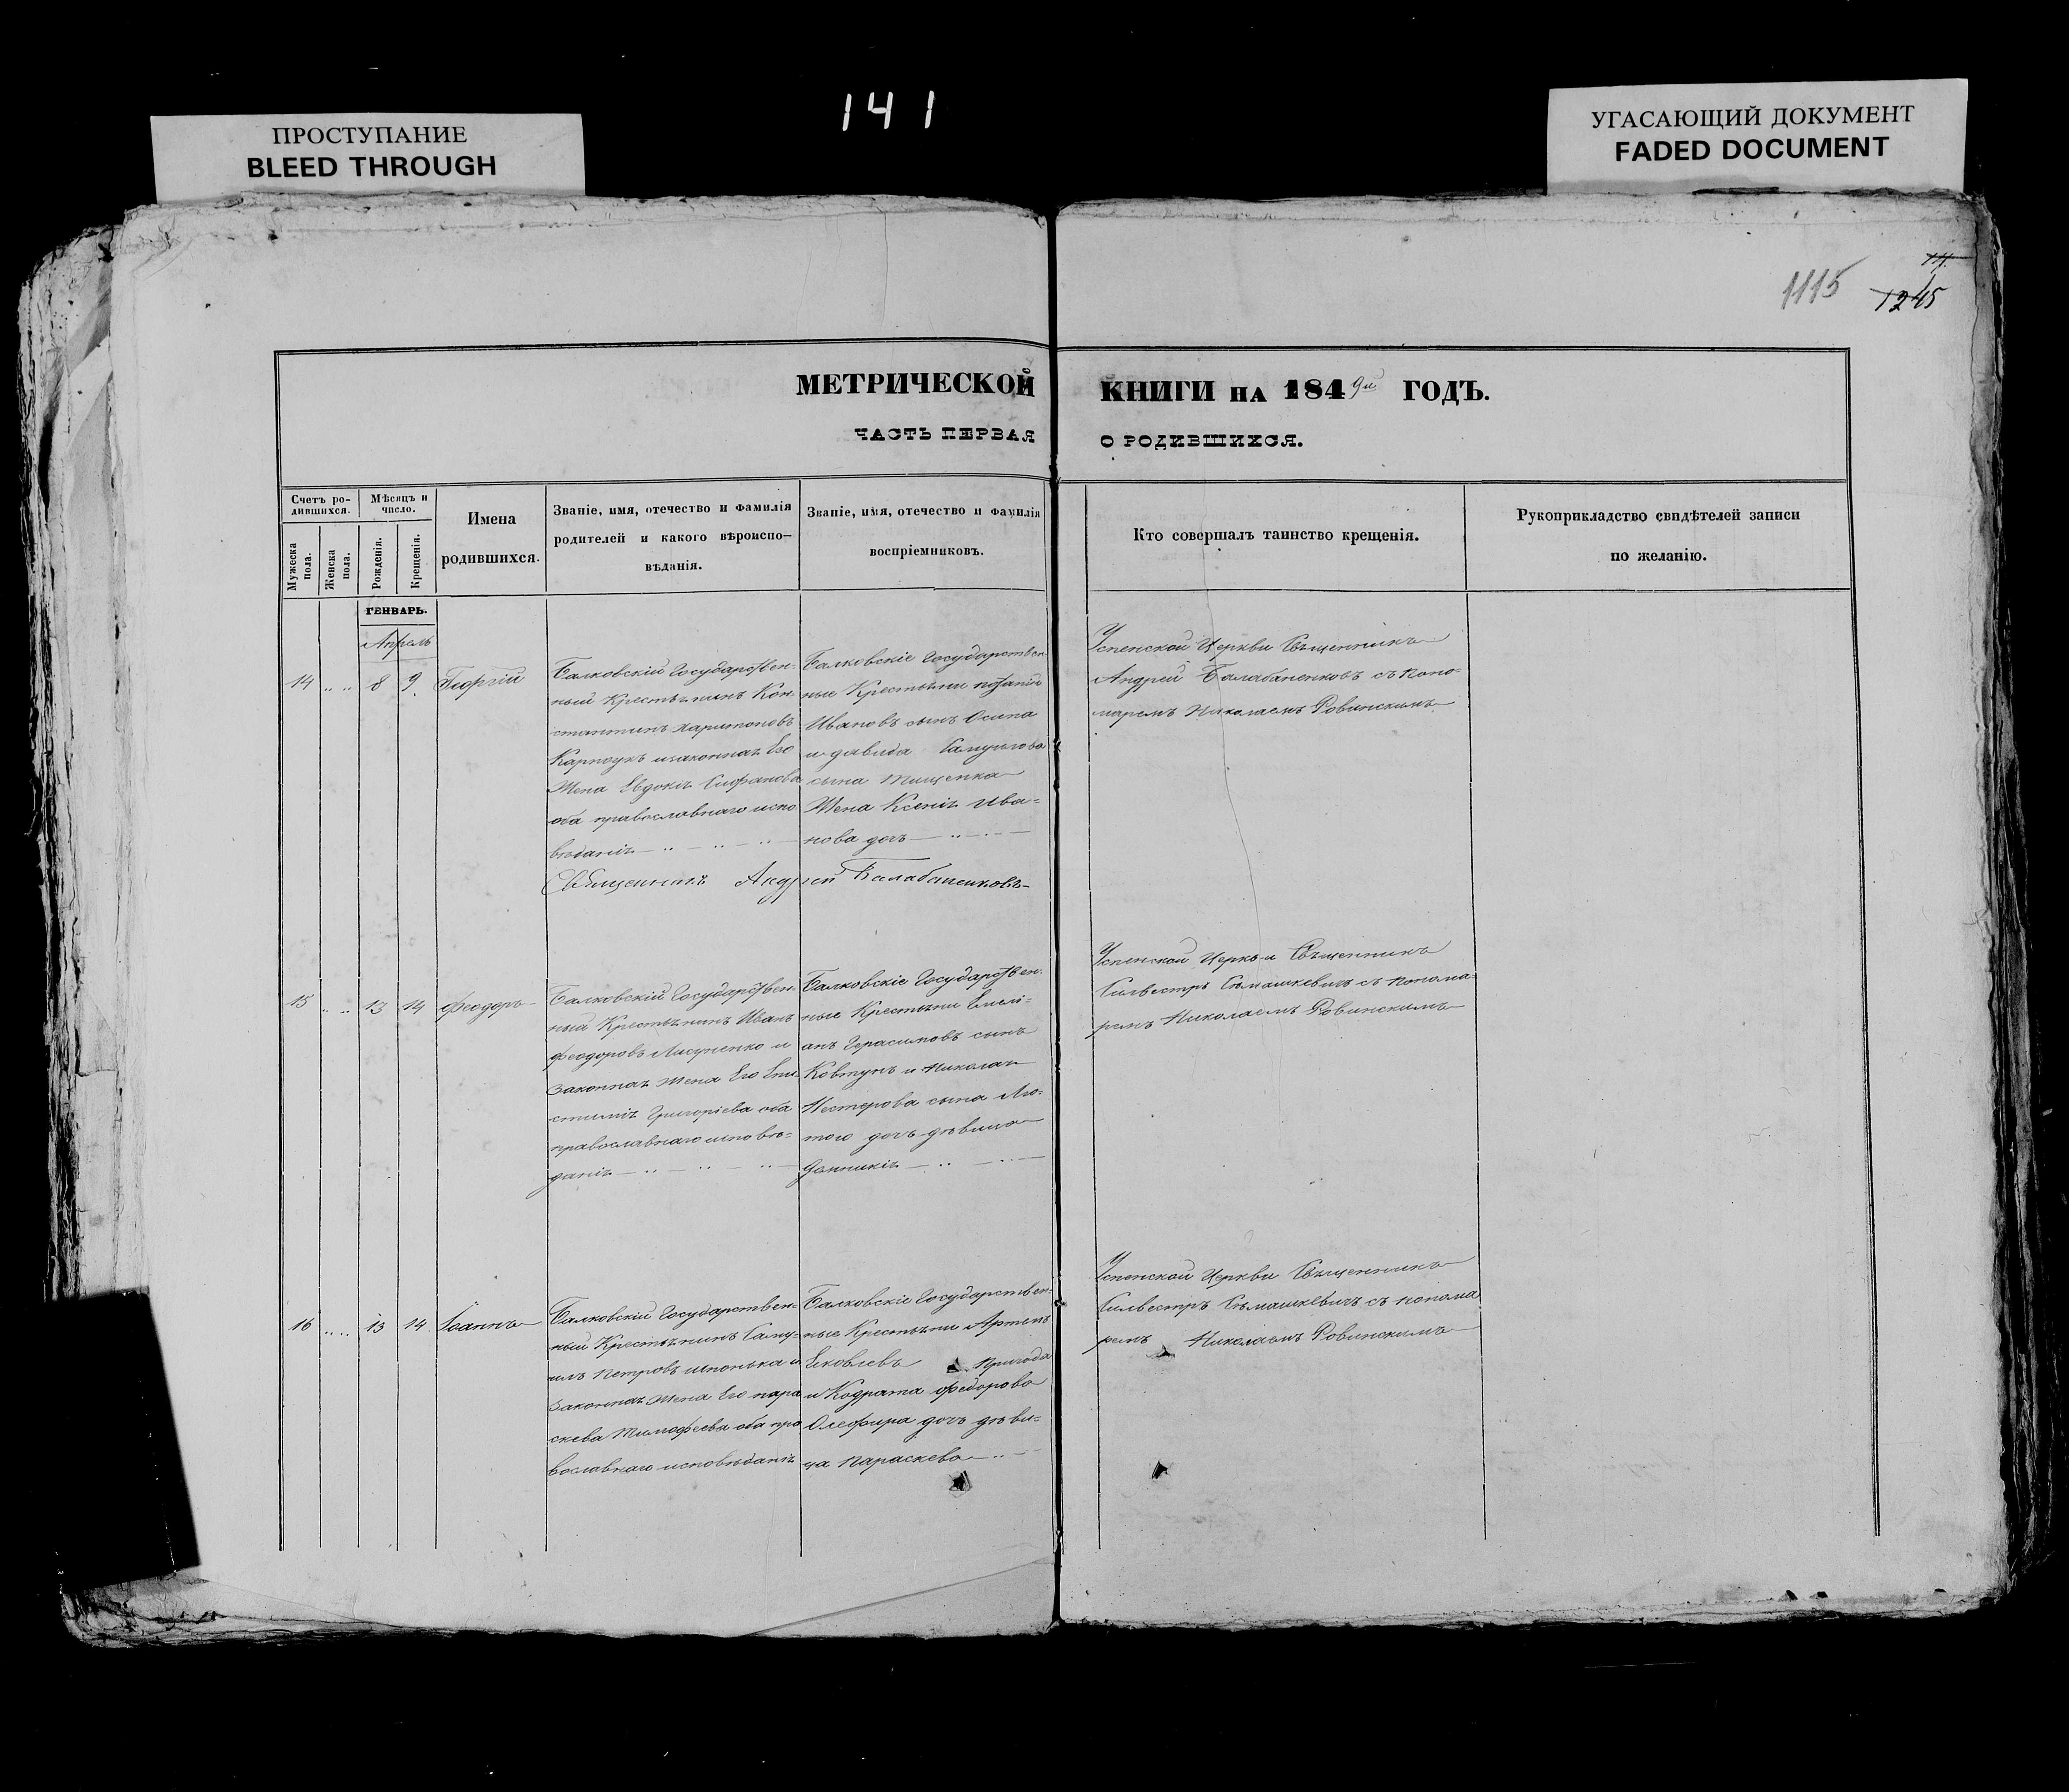 141
ПРОСТУПАНИЕ
BLEED THROUGH
УГАСАЮЩИЙ ДОКУМЕНТ
FADED DOCUMENT
1115
1245
МЕТРИЧЕСКОЙ КНИГИ НА 1849й ГОДЪ.
ЧАСТЬ ПЕРВАЯ О РОДИВШИХСЯ.
Счетъ ро-
дившихся.
Мужеска пола.
Женска пола.
Мѣсяцъ и
число.
Рожденія.
Крещенія.
Имена
родившихся.
Званіе, имя, отечество и фамилія
родителей и какого вѣроиспо-
вѣданія.
Званіе, имя, отечество и фамилія
воспріемниковъ.
Кто совершалъ таинство крещенія.
Рукоприкладство свидѣтелей записи
по желанію.
ГЕНВАРЬ.
Апрель
14 8 9 Георгій
Балковскій Государствен-
ный Крестьянинъ Кон
стантинъ Харитоновъ
Карпукъ и законная Его
Жена Евдокія
оба православнаго испо
вѣданія
Балковскіе Государствен
ные Крестьяни
Ивановъ сынъ Осипа
и давида Самуилова
сына Тищенка
Жена Ксенія Ива-
нова дочь
Священникъ Андрей Балабаненковъ
Успенской Церкви Священникъ
Андрей Балабаненковъ съ Поно-
маремъ Николаемъ Ровинскимъ
15 13 14 Феодоръ
Балковскій Государствен-
ный Крестьянинъ Иванъ
Феодоровъ Лисученко и
Законная Жена Его Епи
стимія Григоріева оба
православнаго исповѣ-
данія
Балковскіе Государствен-
ные Крестьяни Емелі-
анъ Герасимовъ сынъ
Ковтунъ и Николая
Нестерова сына Лю-
того дочь дѣвица
Домникія
Успенской Церкви Священникъ
Сильвестръ Сѣмашкевичъ съ понома-
ремъ Николаемъ Ровинскимъ
16 13 14 Іоаннъ
Балковскій Государствен-
ный Крестьянинъ Саму-
илъ Петровъ шпонька и
Законная Жена Его пара
скева Тимофеева оба пра
вославнаго исповѣданія
Балковскіе Государствен-
ные Крестьяни Артемъ
Яковлевъ Пригода
и Кодрата Федорова
Олефира дочь дѣви-
ца Параскева
Успенской Церкви Священникъ
Сильвестръ Сѣмашкевичъ съ понома
ремъ Николаемъ Ровинскимъ